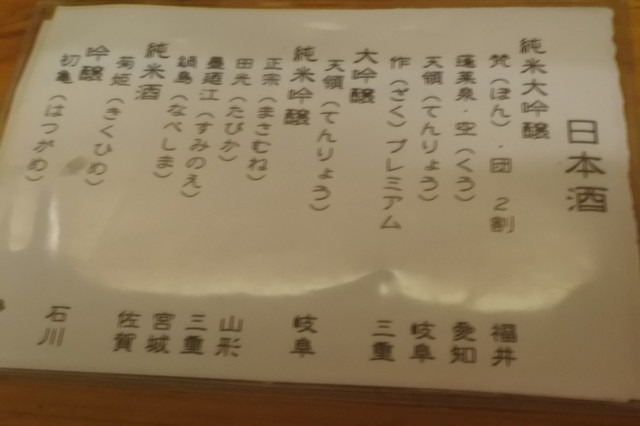 日本酒
純米大吟醸
梵（ぼん）・団　２割　福井
蓬莱泉・空（くう）　愛知
天領（てんりょう）　岐阜
作（ざく）プレミアム　三重
大吟醸
天領（てんりょう）　岐阜
純米吟醸
正宗（まさむね）　山形
田光（たびか）　三重
墨廼江（すみのえ）　宮城
鍋島（なべしま）　佐賀
純米酒
菊姫（きくひめ）　石川
吟醸
初亀（はつがめ）